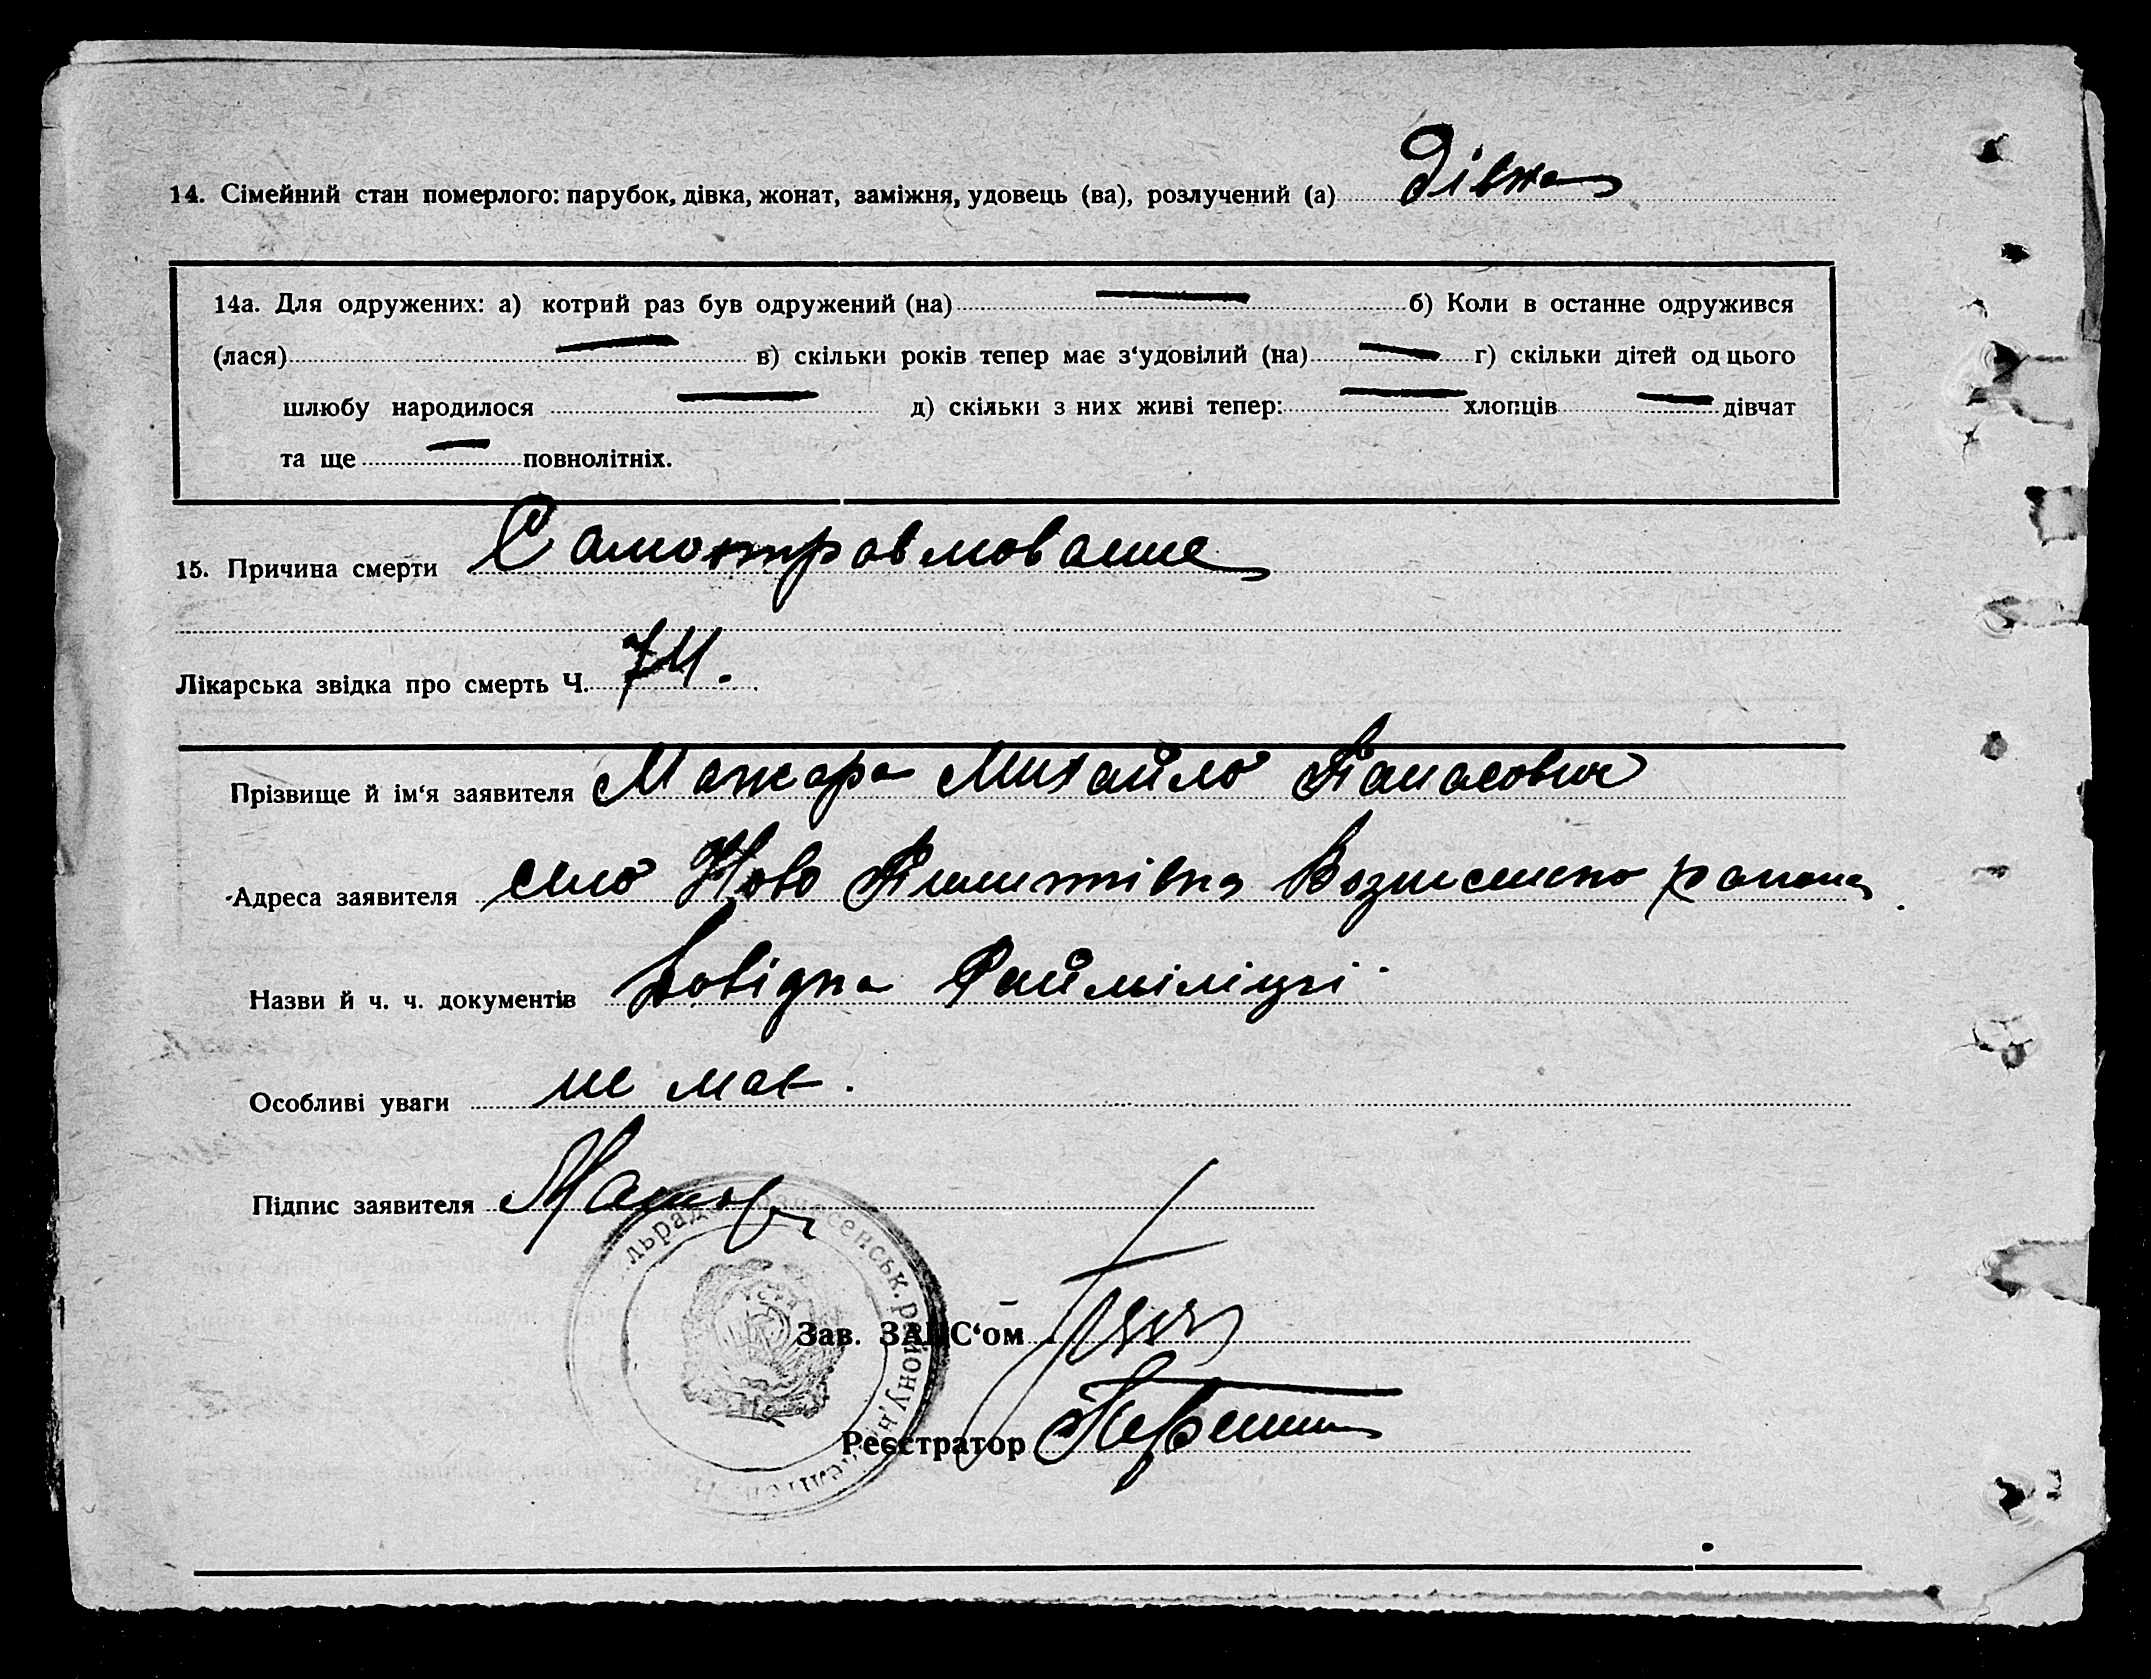 14. Сімейний стан померлого: парубок, дівка, жонат, заміжня, удовець (ва), розлучений (а) дівка
14а. Для одружених: а) котрий раз був одружений (на) — б) Коли в останне одружився
(лася) — в) скільки років тепер має з‘удовілий (на) — г) скільки дітей од цього
шлюбу народилося — д) скільки з них живі тепер: — хлопців — дівчат
та ще — повнолітніх.
15. Причина смерти Самотравмование
Лікарська звідка про смерть Ч. 74.
Прізвище й ім‘я заявителя Мажара Михайло Панасович
Адреса заявителя село Ново Вознесенско района
Назви й ч. ч. документів Довідка Райміліції
Особливі уваги не має.
Підпис заявителя
Вознесенськ. району
Зав. ЗАГС‘ом
Реєстратор